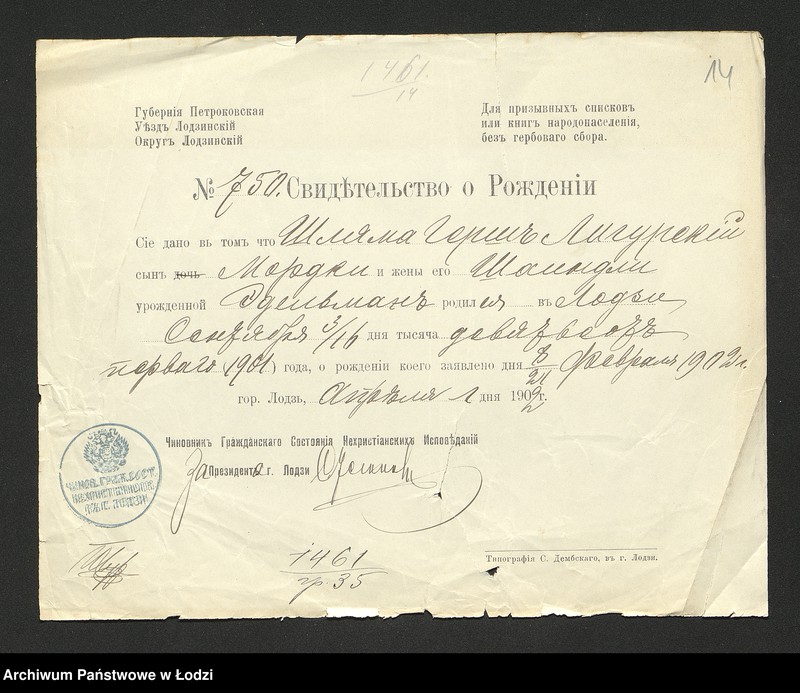 1461.
14
14
Губернія Петроковская
Уѣздъ Лодзинскій
Округъ Лодзинскій
Для призывныхъ списковъ
или книгъ народонаселенія,
безъ гербоваго сбора.
№ 750. Свидѣтельство о Рожденіи
Сіе дано въ томъ что Шляма Гершъ Лигурскій
сынъ дочь Мордки и жены его Шаиндли
урожденной Эдельманъ родился въ Лодзи
Сентября 3/16 дня тысяча девятьсотъ
перваго (1901) года, о рожденіи коего заявлено дня 8/21 Февраля 1902 г.
гор. Лодзь, Апрѣля 1 дня 1902 г.
Чиновник Гражданскаго Состоянія Нехристіанскихъ Исповѣданій
За Президента г. Лодзи
1461
гр. 35
Типографія С. Дембскаго, въ г. Лодзи.
Archiwum Państwowe w Łodzi